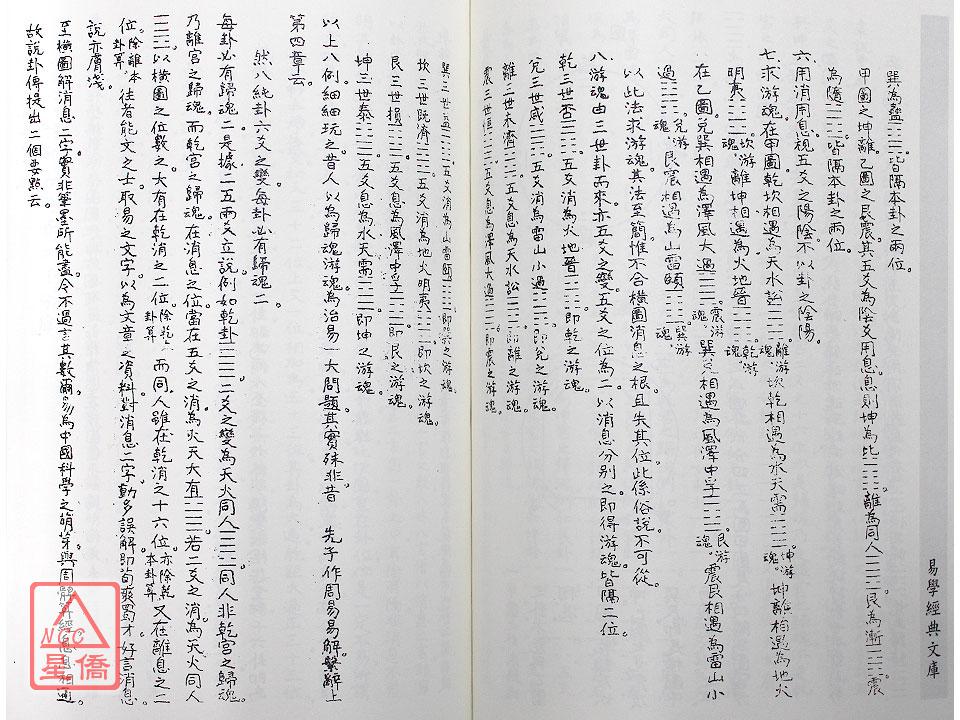 巽為蠱 皆隔本卦之兩位。
甲圖之坤離乙圖之艮震其五爻為陰爻用息息則坤為比 離為同人 艮為漸 震
為隨 皆隔本卦之兩位。
六.用消用息視五爻之陽陰不以卦之陰陽。
七.求游魂在甲圖乾坎相遇為天水訟 離游魂。坎乾相遇為水天需 坤游魂。坤離相遇為地火
明夷 坎游魂。離坤相遇為火地晉 乾游魂。
在乙圖兌巽相遇為澤風大過 震游魂。巽兌相遇為風澤中孚 艮游魂。震艮相遇為雷山小
過 兌游魂。艮震相遇為山雷頤 巽游魂。
以此法求游魂其法至簡惟不合橫圖消息之根且失其位此係俗說不可從
八.游魂由三世卦而來亦五爻之變五爻之位為二以消息分別之即得游魂皆隔二位。
乾三世否 五爻消為火地晉 即乾之游魂。
兌三世咸 五爻消為雷山小過 即兌之游魂。
離三世未濟 五爻息為天水訟 即離之游魂。
震三世恒 五爻息為澤風大過 即震之游魂。
巽三世益 五爻消為山雷頤 即巽之游魂。
坎三世既濟 五爻消為地火明夷 即坎之游魂。
艮三世損 五爻息為風澤中孚 即艮之游魂。
坤三世泰 五爻息為水天需 即坤之游魂。
以上八例。細細玩之昔人以為歸魂游魂為治易一大問題其實殊非昔 先子作周易易解繫辭上
第四章云。
然八純卦六爻之變每卦必有歸魂二
每卦必有歸魂二是據二五兩爻立說例如乾卦 二爻之變為天火同人 同人非乾宮之歸魂
乃離宮之歸魂。而乾宮之歸魂在消息之位當在五爻之消為火天大有 若二爻之消為天火同人
以橫圖之位數之大有在乾消之二位 除乾卦算。而同人雖在乾消之十六位。亦除乾本卦算 又在離息之二
位。除離本卦算。往者能文之士取易之文字以為文章之資料對消息二字動多誤解即荀爽蜀才好言消息
說亦膚淺。
至橫圖解消息二字實非筆墨所能盡今不過言其數爾易為中國科學之萌芽與周髀算經息息相通
故說卦傳提出二個要點云。
易學經典文庫
NCC
星僑